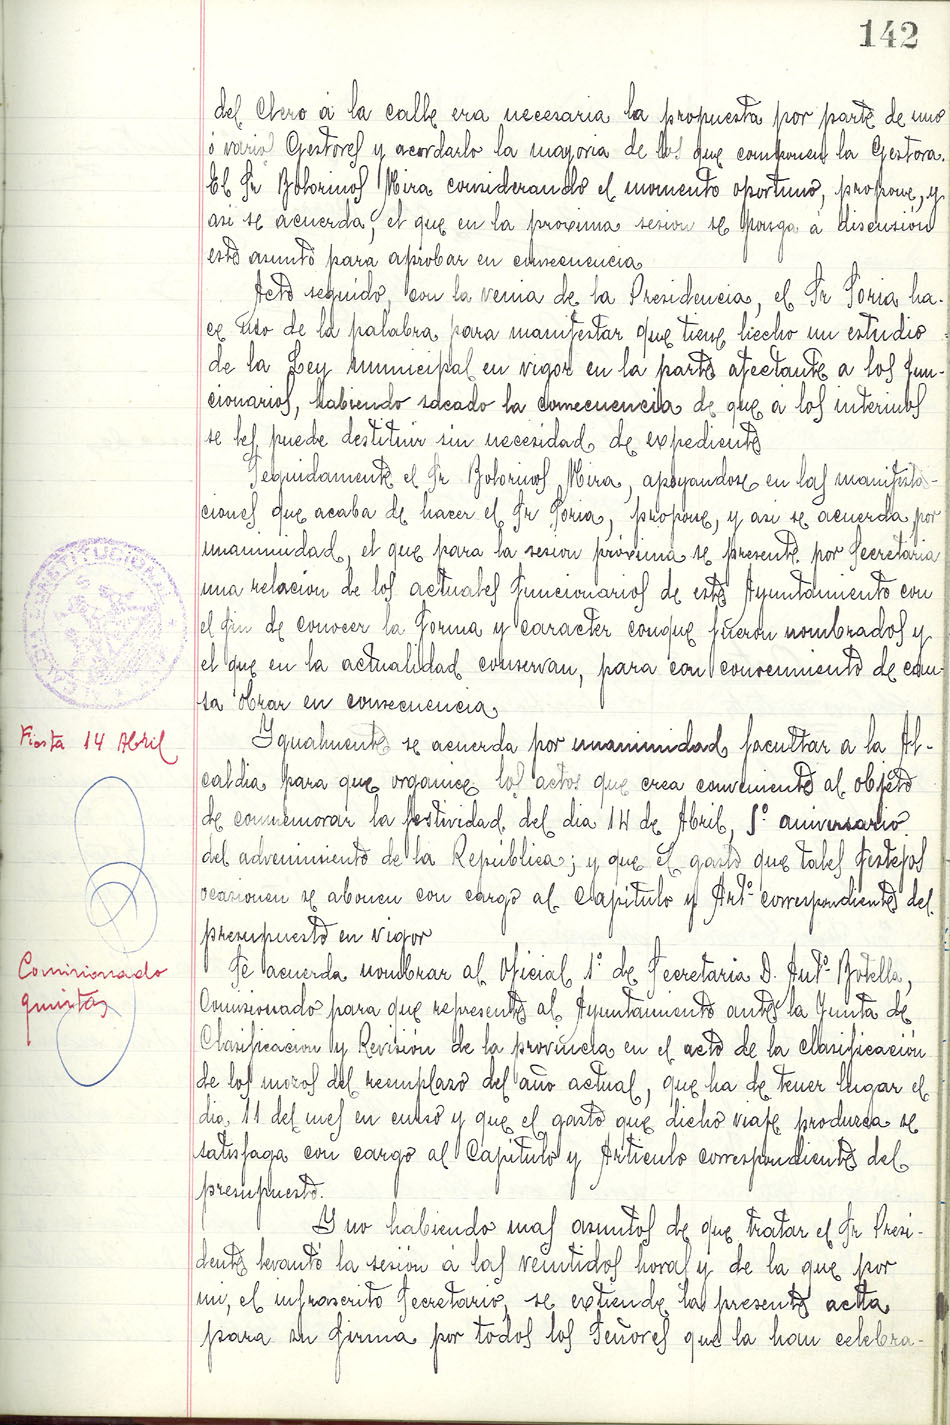 142
del Clero á la calle era necesaria la propuesta por parte de uno
ó varios Gestores y acordarlo la mayoria de los que componen la Gestora.
El Sr Botorinos Mira considerando el momento oportuno, propone, y
asi se acuerda, el que en la proxima sesion se ponga á discusión
este asunto para aprobar en consecuencia
Acto seguido, con la venia de la Presidencia, el Sr Soria ha-
ce uso de la palabra para manifestar que tiene hecho un estudio
de la Ley municipal en vigor en la parte afectante a los fun-
cionarios, habiendo sacado la consecuencia de que á los interinos
se les puede destituir sin necesidad de expediente
Seguidamente el Sr Botorinos Mira, apoyandose en las manifesta-
ciones que acaba de hacer el Sr Soria, propone, y asi se acuerda por
unanimidad, el que para la sesion próxima se presente por Secretaria
una relacion de los actuales funcionarios de este Ayuntamiento con
el fin de conocer la forma y caracter conque fueron nombrados y
el que en la actualidad conservan, para con conocimiento de cau-
sa obrar en consecuencia
ALCALDIA CONSTITUCIONAL
Fiesta 14 Abril
Ygualmente se acuerda por unanimidad facultar a la Al-
caldia para que organice los actos que crea conveniente al objeto
de conmemorar la festividad del dia 14 de Abril, 5º aniversario
del advenimiento de la República; y que el gasto que tales festejos
ocasionen se abonen con cargo al Capitulo y Artº correspondientes del
presupuesto en vigor
Comisionado
quintas
Se acuerda nombrar al Oficial 1º de Secretaria D. Antº Botella,
Comisionado para que represente al Ayuntamiento ante la Junta de
Clasificacion y Revisión de la provincia en el acto de la clasificación
de los mozos del reemplazo del año actual, que ha de tener lugar el
dia 11 del mes en curso y que el gasto que dicho viaje produzca se
satisfaga con cargo al Capitulo y Articulo correspondiente del
presupuesto.
Y no habiendo mas asuntos de que tratar el Sr Presi-
dente levantó la sesión á las veintidos horas y de la que por
mi, el infrascrito Secretario, se extiende la presente acta
para su firma por todos los Señores que la han celebra-